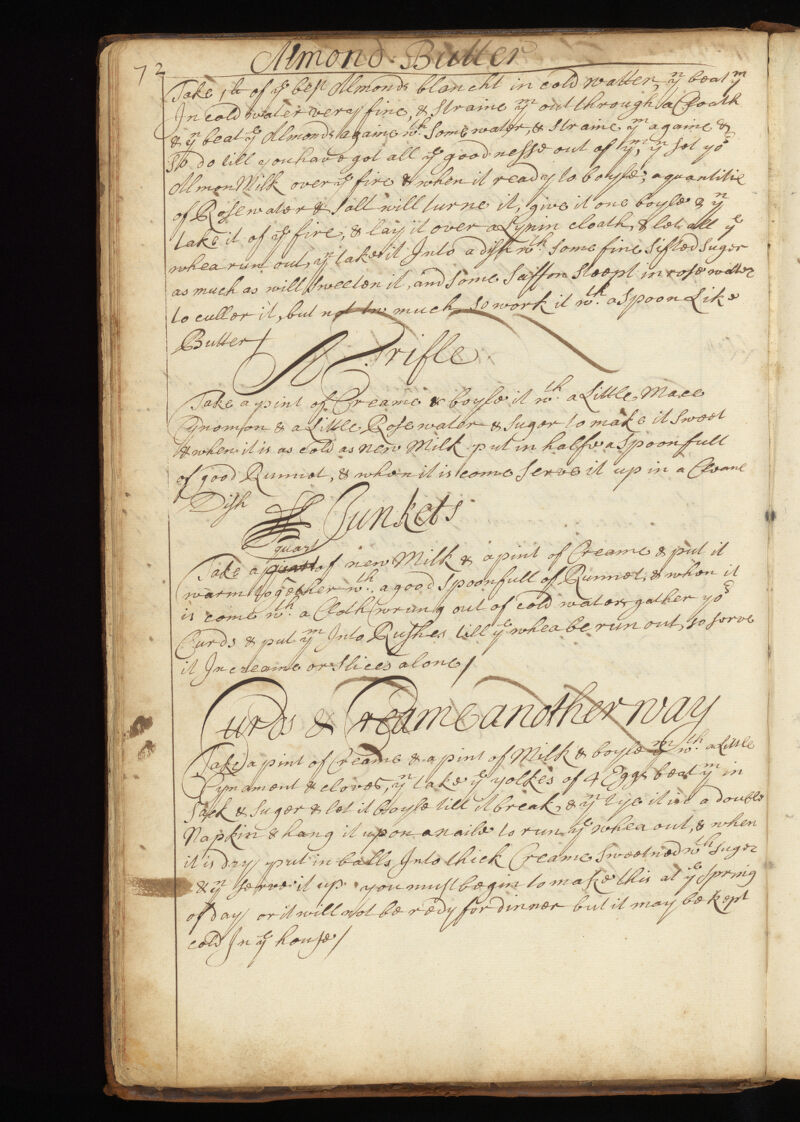 72
Almond Butter
Take 1lb of ye best Almonds blancht in cold watter, yn beat ym
In cold water very fine, & straine ym out through a Cloath
& yn beat ye Almonds againe wth some water, & straine ym againe &
so do till you have got all ye goodnesse out of ym, yn set yor
Almon Milk over ye fire & when it ready to boyle; a quantitie
of Rose water & salt will turne it, give it one boyle & yn
take it of ye fire, & lay it over a Lynin cloath, & let all ye
whea run out, yn take it Into a dish wth some fine sifted Suger
as much as will sweeten it, and some Saffon steept in rose watter
to culler it, but not to much, so work it wth a spoon Like
Butter/
A Trifle
Take a pint of Creame & boyle it wth a Little Mace
Cynomon & a Little Rosewater & Suger to make it sweet
& when it is as cold as new Milk put in halfe a Spoonfull
of good Runnet, & when it is come serve it up in a Cleane
Dish
Junkets
quart
Take a quart of new Milk & a pint of Creame & put it
warm together wth a good spoonfull of Runnet, & when it
is come wth a Cloth wrung out of cold water, gather yor
Curds & put ym Into Rushes till ye whea be run out, so serve
it In creame or slices alone/
Curds & Creame another way
Take a pint of Creame & a pint of Milk & boyle ym wth a Little
Cynament & cloves, yn take ye yolkes of 4 Eggs beat ym in
Sack & Suger & let it boyle till it break, & yn tye it in a double
Napkin & hang it upon a naile to run ye whea out, & when
it is dry put in balls Into thick Creame sweetned wth Suger
& yn serve it up you must begin to make this at ye Spring
of day or it will not be redy for dinner but it may be kept
cold In ye house/